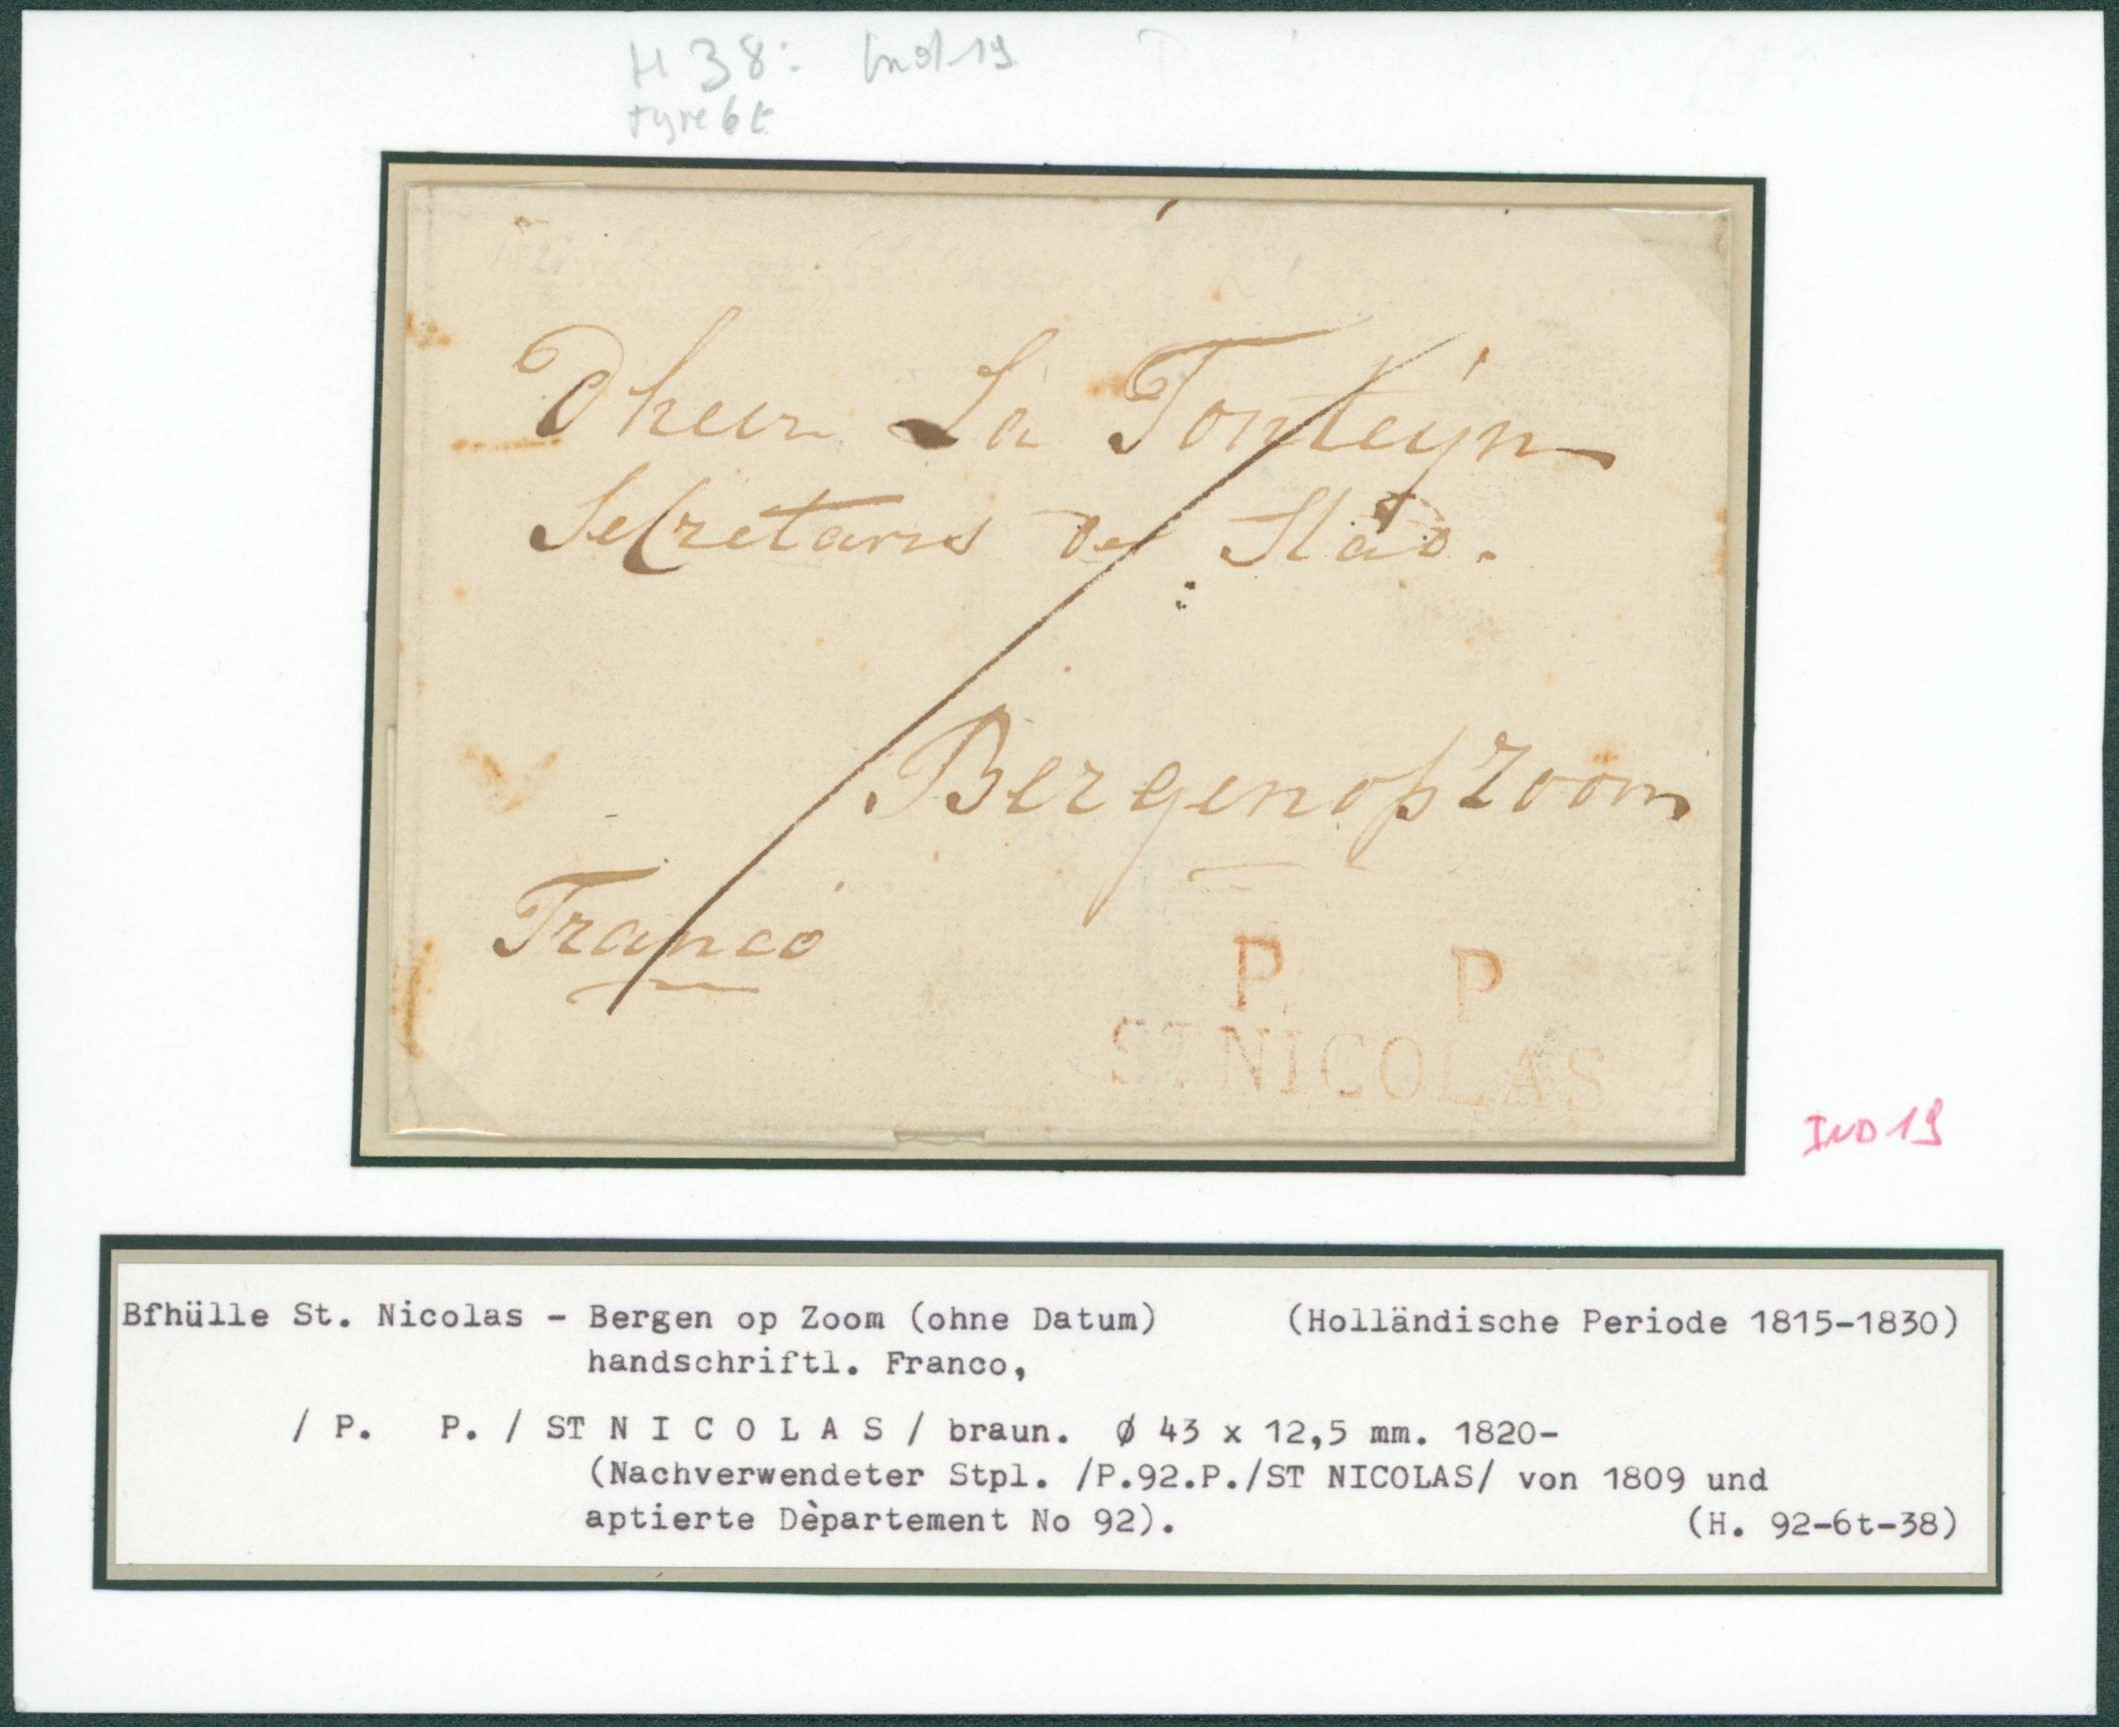 H 38: Ind 19
type 6t
Dheer La Fonteyn
Secretaris der Stad.
Bergenopzoom
Franco
P. P
ST. NICOLAS
IND 19
Bfhülle St. Nicolas - Bergen op Zoom (ohne Datum) (Holländische Periode 1815-1830)
handschriftl. Franco,
/ P. P. / ST N I C O L A S / braun. ø 43 x 12,5 mm. 1820-
(Nachverwendeter Stpl. /P.92.P./ST NICOLAS/ von 1809 und
aptierte Dèpartement No 92). (H. 92-6t-38)